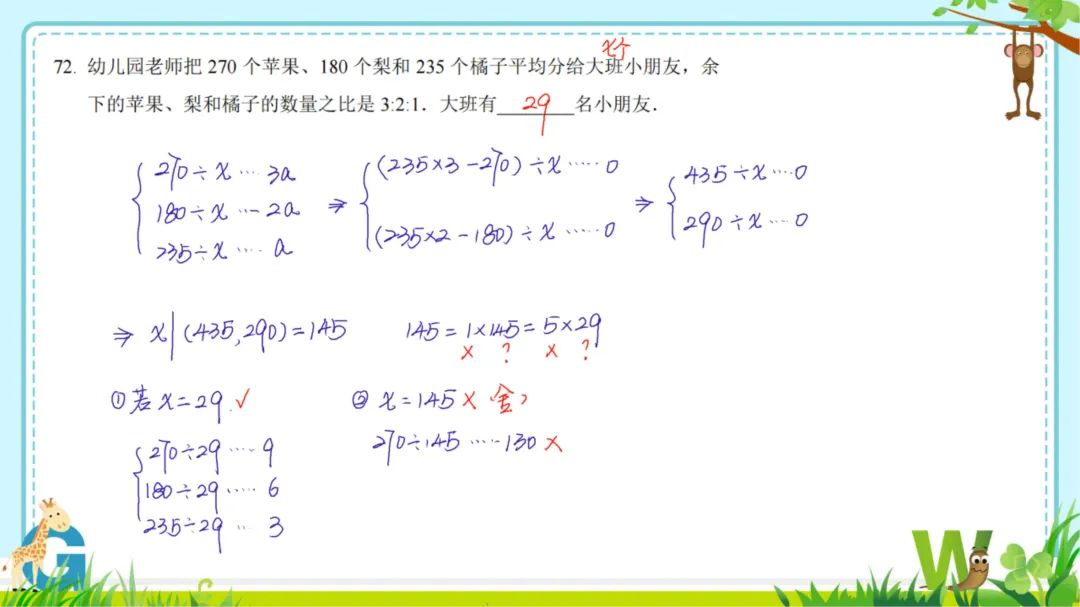 x个
72. 幼儿园老师把 270 个苹果、180 个梨和 235 个橘子平均分给大班小朋友，余
下的苹果、梨和橘子的数量之比是 3:2:1．大班有 29 名小朋友．
270÷x … 3a
180÷x … 2a
235÷x … a
⇒ (235×3-270)÷x …… 0
(235×2-180)÷x …… 0
⇒ 435÷x … 0
290÷x … 0
⇒ x|(435,290)=145
145=1×145=5×29
× ? × ?
① 若x=29 ✓
270÷29 … 9
180÷29 …… 6
235÷29 … 3
② x=145 × 舍
270÷145 …… 130 ×
G
W